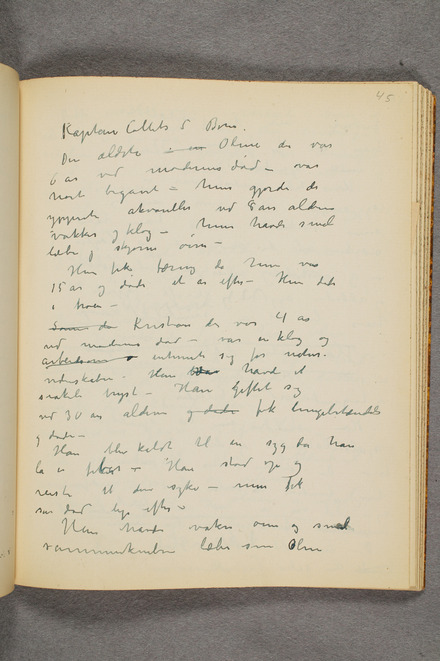 45
Kaptain Colletts 5 Børn.
Den ældste Oline der var
6 år ved moderens død – var
meget begavet – hun gjorde de
ypperste akvareller ved 8 års alderen
vakker og klog – hun havde smal
læbe og skjønne øine –
Hun fik tæring da hun var
15 år og døde et år efter – Hun døde
i troen –
Kristian der var 4 år
ved moderens død – var en klog og
arbeidsom interesserte sig for natur-
videnskaben. Han havde et
svakelig bryst – Han giftet sig
ved 30 års alderen og døde fik lungebetændelse
og døde –
Han blev kaldt til en syg da han
lå i feber – Han stod op og
reiste til den syke – men fik
sin død lige efter –
Han havde vakre øine og smal
sammenknebne læber som Oline